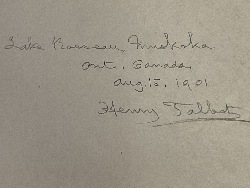 Lake Rosseau, Muskoka.
Ont. Canada.
Aug. 15, 1901
Henry Talbott